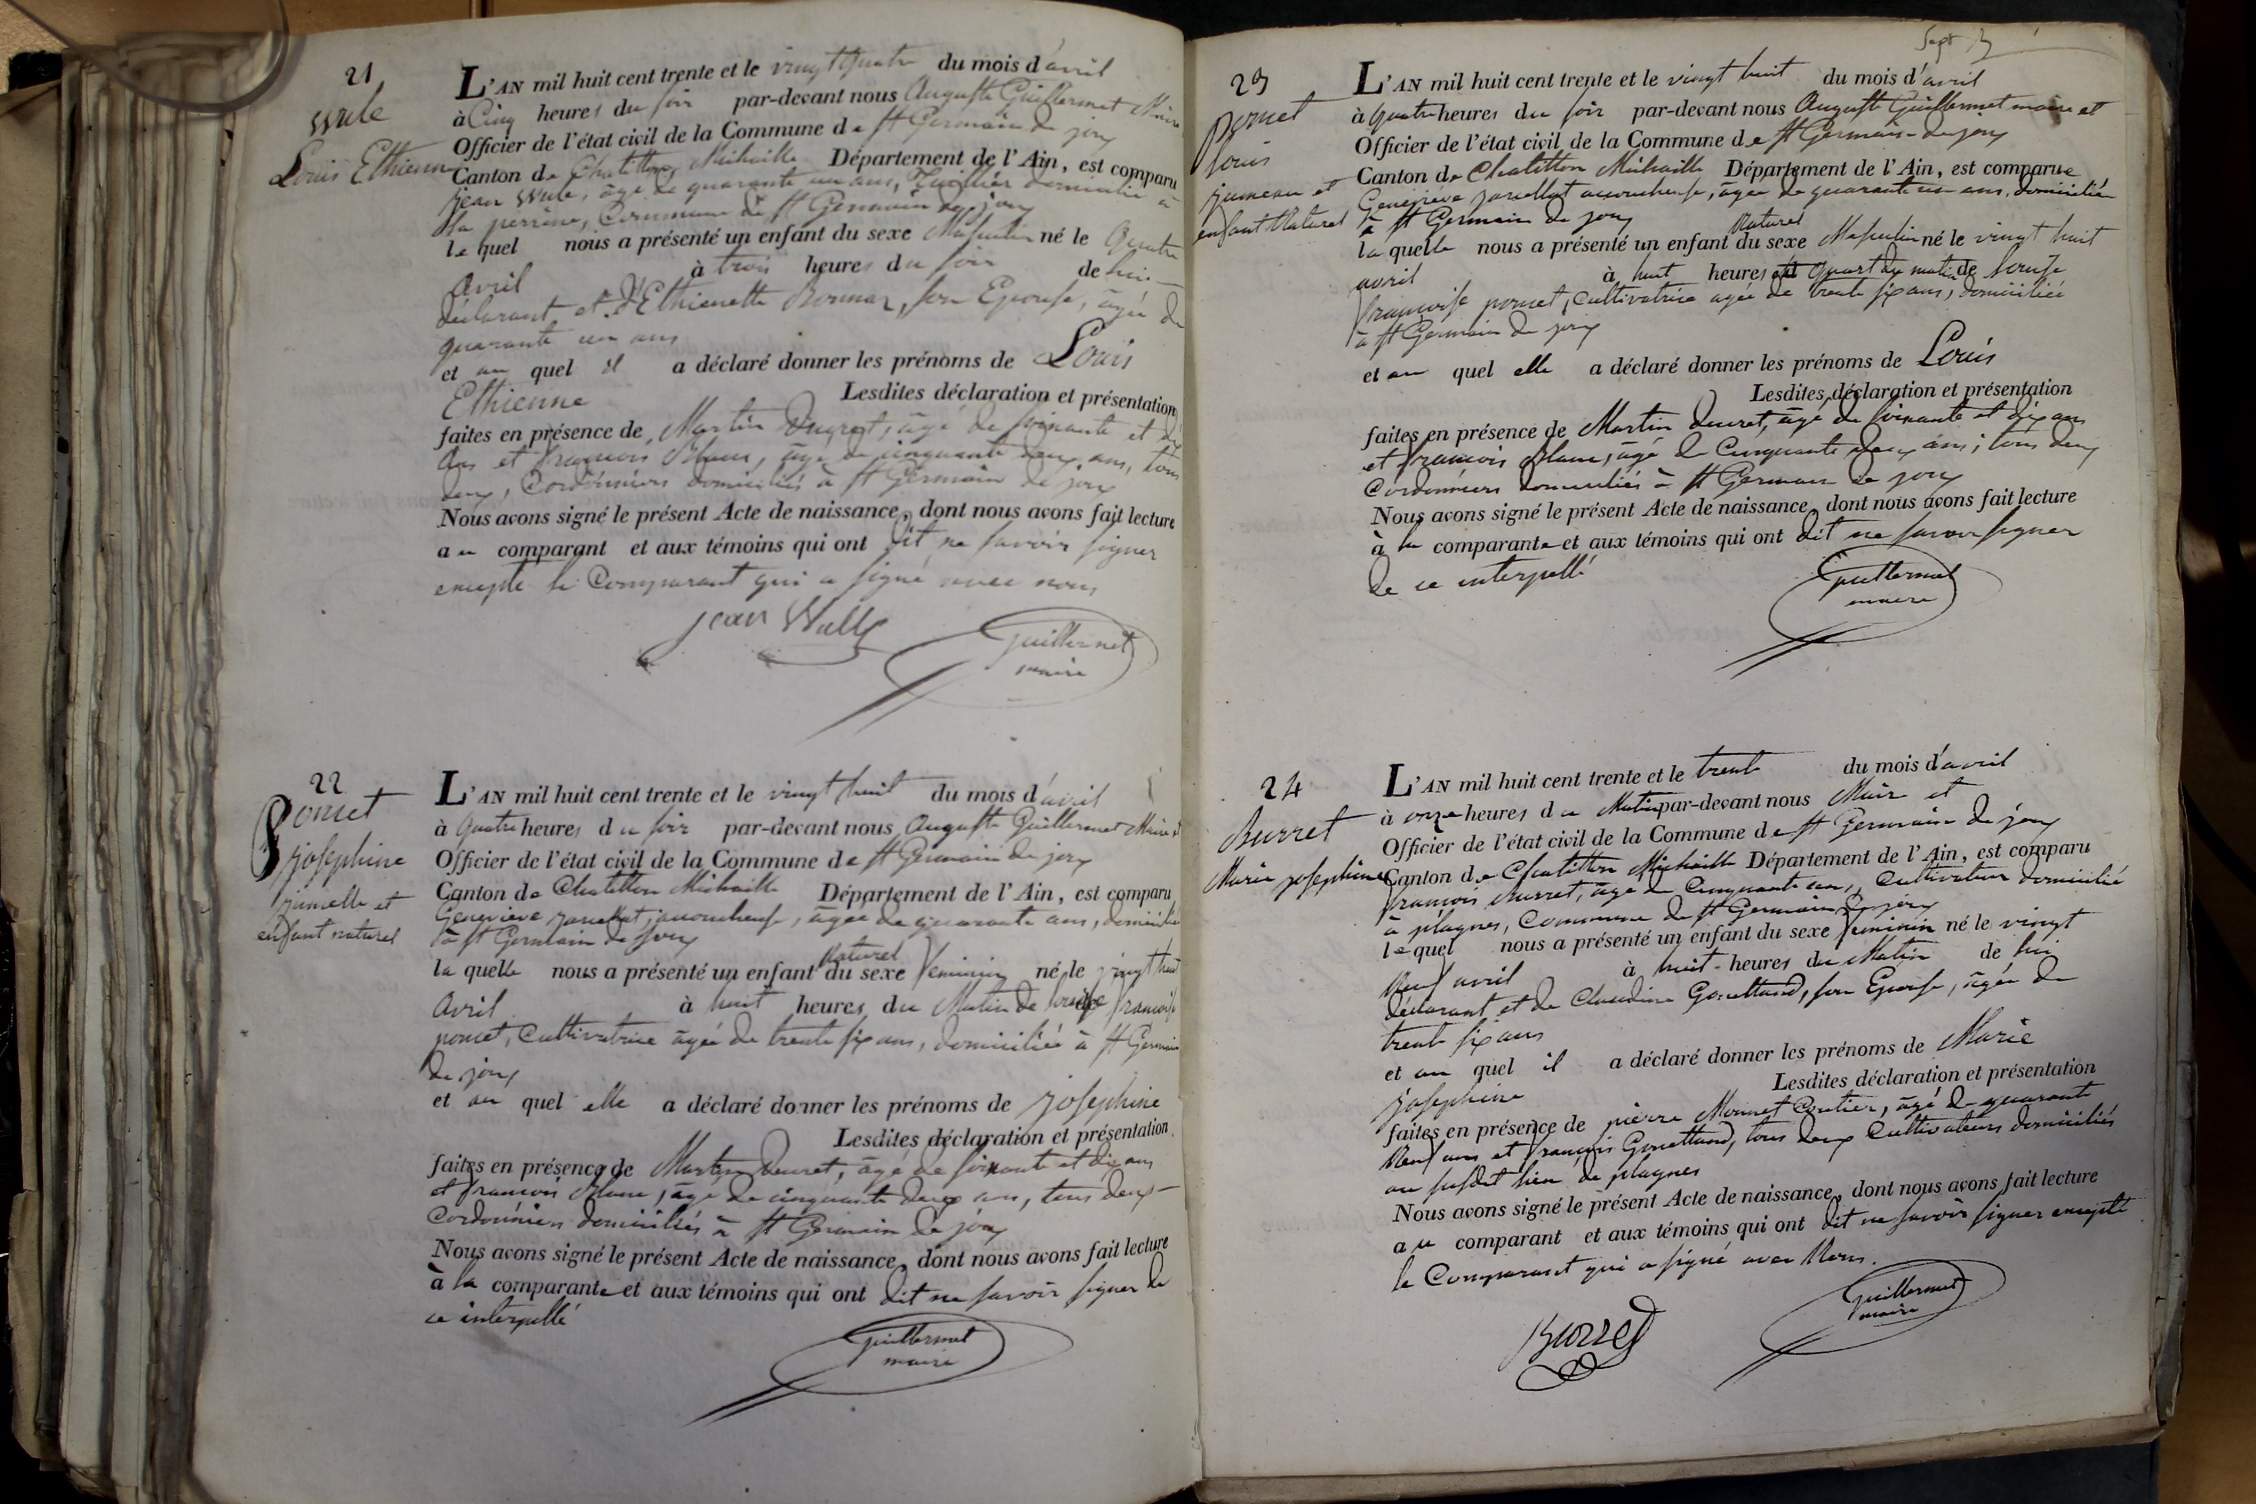 21
Wule
Louis Ethienne
L'AN mil huit cent trente et le vingt quatre du mois d'avril
à Cinq heures du soir par-devant nous Auguste Guillermet Maire
Officier de l'état civil de la Commune de St Germain de joux
Canton de Chatillon Michaille Département de l'Ain, est comparu
jean Wule, âgé de quarante un ans, domicilié à
la perrière, Commune de St Germain de joux
le quel nous a présenté un enfant du sexe Masculin né le Quatre
avril à trois heures du soir de lui
déclarant et d'Ethienette son Epouse, âgée de
quarante un ans
et au quel il a déclaré donner les prénoms de Louis
Ethienne Lesdites déclaration et présentation
faites en présence de Martin âgé de soixante et dix
ans et francois Blanc, âgé de cinquante deux ans, tous
deux, Cordonniers domiciliés à St Germain de joux
Nous avons signé le présent Acte de naissance, dont nous avons fait lecture
au comparant et aux témoins qui ont dit ne savoir signer
excepté le Comparant qui a signé avec nous
jean Wulle
Guillermet
maire
22
Poncet
josephine
jumelle et
enfant naturel
L'AN mil huit cent trente et le vingt huit du mois d'avril
à quatre heures du soir par-devant nous Auguste Guillermet Maire et
Officier de l'état civil de la Commune de St Germain de joux
Canton de Chatillon Michaille Département de l'Ain, est comparu
Geneviève accoucheuse, âgée de quarante ans, domiciliée
à St Germain de joux
la quelle nous a présenté un enfant Naturel du sexe feminin né le vingt huit
avril à huit heures du Matin de louise francoise
poncet, Cultivatrice âgée de trente six ans, domiciliée à St Germain
de joux
et au quel elle a déclaré donner les prénoms de josephine
Lesdites déclaration et présentation
faites en présence de Martin Ducret, âgé de soixante et dix ans
et francois Blanc, âgé de cinquante deux ans, tous deux
Cordonniers domiciliés à St Germain de joux
Nous avons signé le présent Acte de naissance, dont nous avons fait lecture
à la comparante et aux témoins qui ont dit ne savoir signer de
ce interpellé
Guillermet
maire
23
Poncet
louis
jumeau et
enfant Naturel
L'AN mil huit cent trente et le vingt huit du mois d'avril
à quatre heures du soir par-devant nous Auguste Guillermet maire et
Officier de l'état civil de la Commune de St Germain de joux
Canton de Chatillon Michaille Département de l'Ain, est comparue
Geneviève accoucheuse, âgée de quarante ans, domiciliée
à St Germain de joux
la quelle nous a présenté un enfant Naturel du sexe Masculin né le vingt huit
avril à huit heures et quart du matin de louise
francoise poncet, Cultivatrice âgée de trente six ans, domiciliée
à St Germain de joux
et au quel elle a déclaré donner les prénoms de Louis
Lesdites déclaration et présentation
faites en présence de Martin Ducret, âgé de soixante et dix ans
et francois Blanc, âgé de Cinquante deux ans, tous deux
Cordonniers domiciliés à St Germain de joux
Nous avons signé le présent Acte de naissance, dont nous avons fait lecture
à la comparante et aux témoins qui ont dit ne savoir signer
de ce interpellé
Guillermet
maire
24
Burret
Marie josephine
L'AN mil huit cent trente et le trente du mois d'avril
à onze heures du Matin par-devant nous Maire et
Officier de l'état civil de la Commune de St Germain de joux
Canton de Chatillon Michaille Département de l'Ain, est comparu
francois Burret, âgé de Cinquante ans, Cultivateur domicilié
à plagnes, Commune de St Germain de joux
le quel nous a présenté un enfant du sexe feminin né le vingt
Neuf avril à huit heures du Matin de lui
déclarant et de Claudine Gonettand, son Epouse, âgée de
trente six ans
et au quel il a déclaré donner les prénoms de Marie
josephine Lesdites déclaration et présentation
faites en présence de pierre Monnet Coutier, âgé de quarante
Neuf ans et françois Gonettand, tous deux Cultivateurs domiciliés
au susdit lieu de plagnes
Nous avons signé le présent Acte de naissance, dont nous avons fait lecture
au comparant et aux témoins qui ont dit ne savoir signer excepté
le Comparant qui a signé avec Nous.
Burret
Guillermet
maire